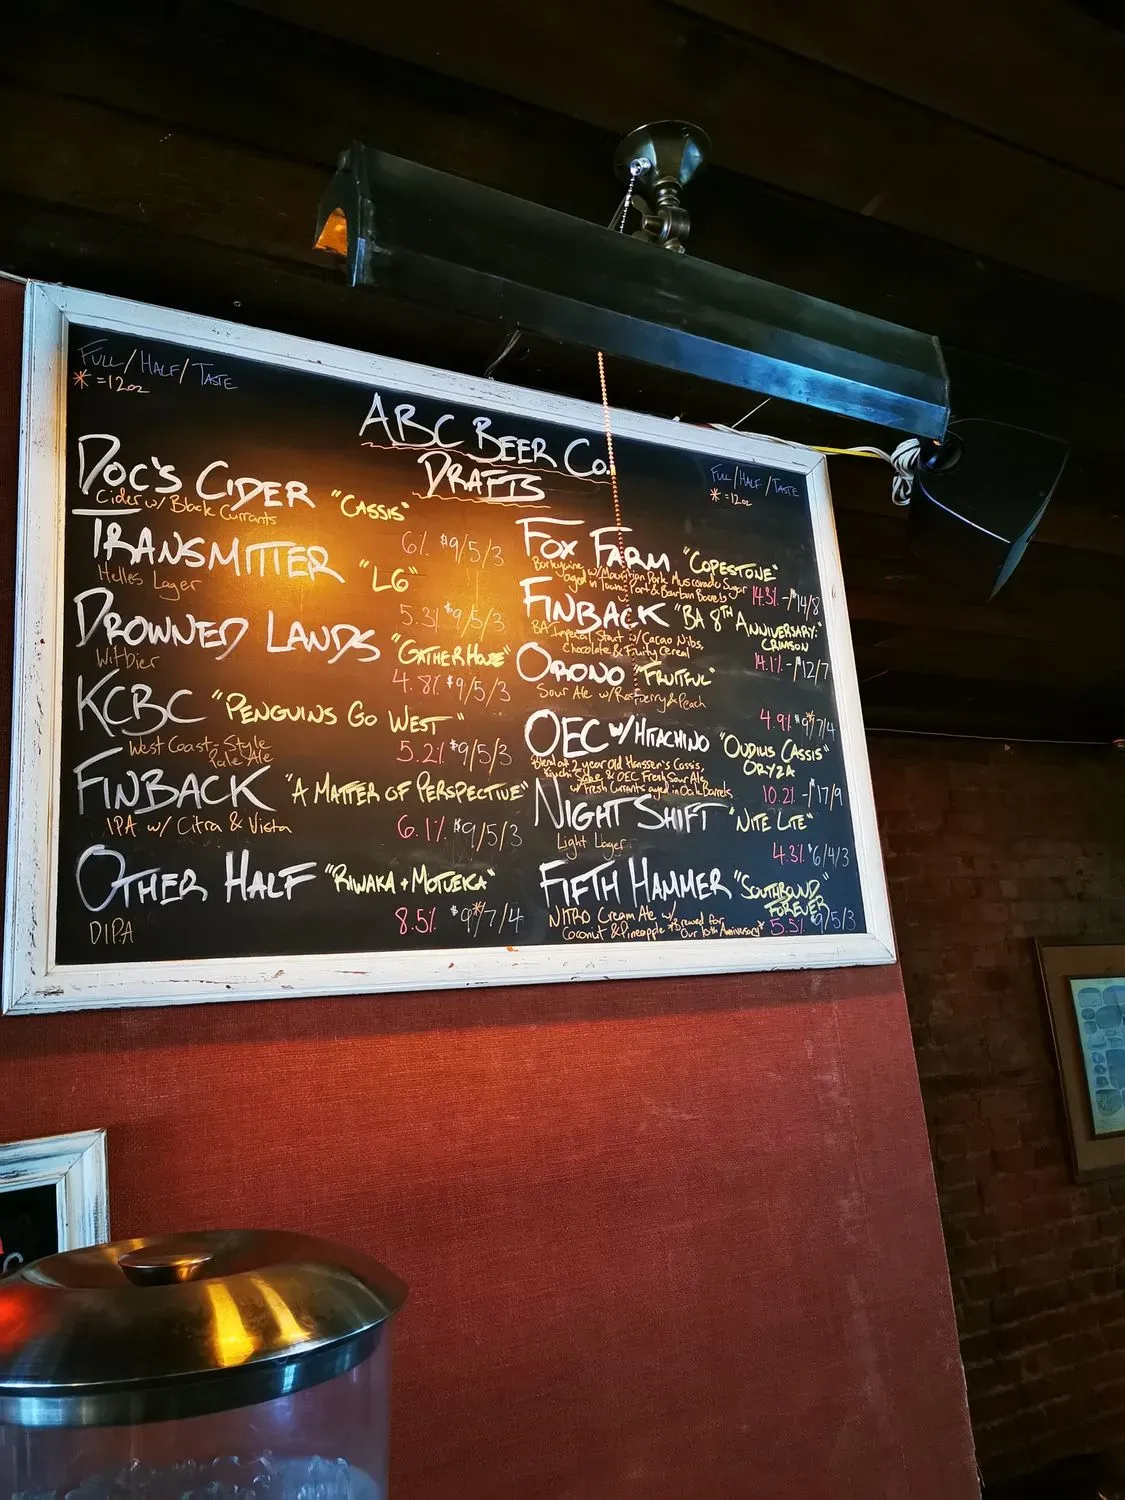 FULL/HALF/TASTE
* = 12oz
ABC BEER CO.
DRAFTS
DOC'S CIDER "CASSIS"
Cider w/ Black Currants
6% $9/5/3
TRANSMITTER "L6"
Helles Lager
5.3% $9/5/3
DROWNED LANDS "GATHERHOUSE"
Witbier
4.8% $9/5/3
KCBC "PENGUINS GO WEST"
West Coast-Style
Pale Ale
5.2% $9/5/3
FINBACK "A MATTER OF PERSPECTIVE"
IPA w/ Citra & Vista
6.1% $9/5/3
OTHER HALF "RIWAKA + MOTUEKA"
DIPA
8.5% $9*/7/4
FULL/HALF/TASTE
* = 12oz
FOX FARM "COPESTONE"
Barleywine w/ Mauritian Dark Muscovado Sugar
aged in Tawny Port & Bourbon Barrels
14.3% -/$14/8
FINBACK "BA 8TH
ANNIVERSARY:
CRIMSON"
BA Imperial Stout w/ Cacao Nibs,
Chocolate & Fruity Cereal
14.1% -/$12/7
ORONO "FRUITFUL"
Sour Ale w/ Raspberry & Peach
4.9% $9*/7/4
OEC w/ HITACHINO "OUDIUS CASSIS"
ORYZA
Blend of 2 year old Hanssen's Cassis,
Sake & OEC Fresh Sour Ale
w/ Fresh Currants aged in Oak Barrels
10.2% -/$17/9
NIGHT SHIFT "NITE LITE"
Light Lager
4.3% $6/4/3
FIFTH HAMMER "SOUTHBOUND
FOREVER"
NITRO Cream Ale w/
Coconut & Pineapple *Brewed for
Our 10th Anniversary*
5.5% $9/5/3